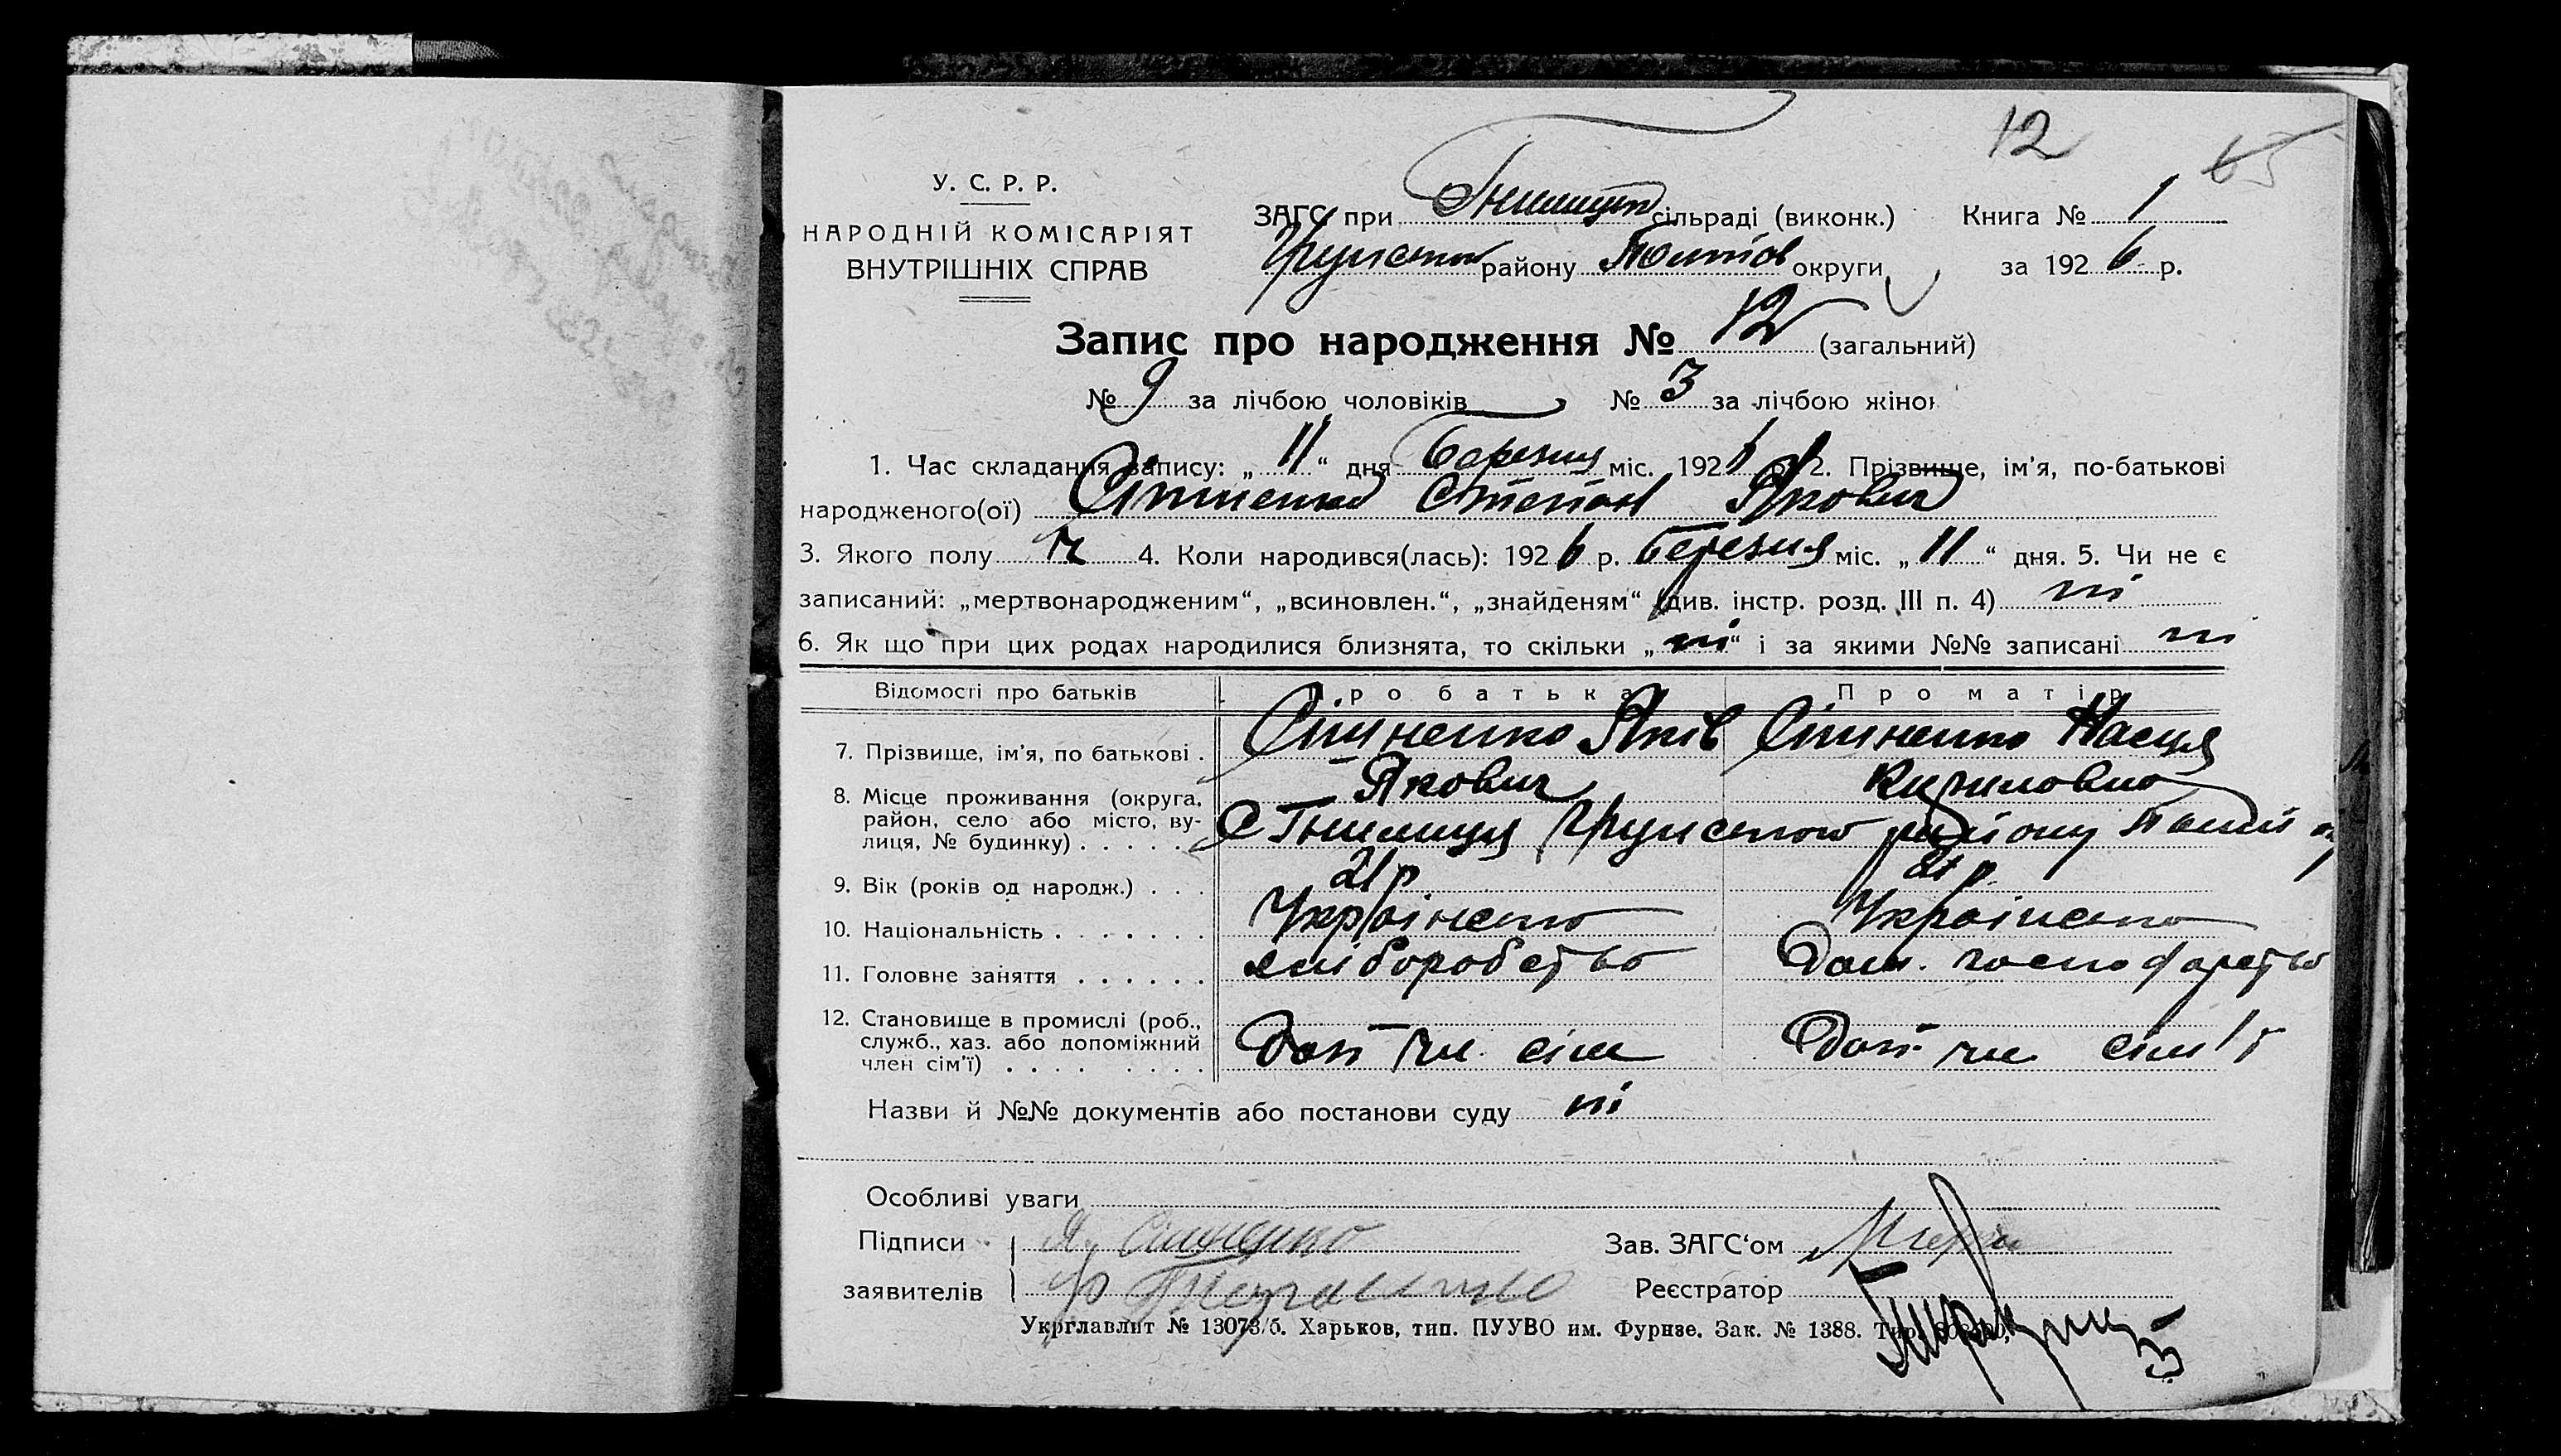 12
65
У. С. Р. Р.
НАРОДНІЙ КОМІСАРІЯТ
ВНУТРІШНІХ СПРАВ
ЗАГС при Гнилицьк сільраді (виконк.) Книга № 1
Грунськ району Полтав округи за 1926 р.
Запис про народження № 12 (загальний)
№ 9 за лічбою чоловіків № 3 за лічбою жінок
1. Час складання запису: „11“ дня Березня міс. 1926 р. 2. Прізвище, ім'я, по-батькові
народженого(ої) Степан Якович
3. Якого полу ч 4. Коли народився(лась): 1926 р. Березня міс. „11“ дня. 5. Чи не є
записаний: „мертвонародженим“, „всиновлен.“, „знайденям“ (див. інстр. розд. III п. 4) ні
6. Як що при цих родах народилися близнята, то скільки „ні“ і за якими №№ записані ні
Відомості про батьків Про батька Про матір
7. Прізвище, ім'я, по батькові . Сіпиненко Яків Сіпиненко Настя
Якович Кириловна
8. Місце проживання (округа, район, село або місто, вулиця, № будинку) . . . . . С Гнилиця Грунського району
9. Вік (років од народж.) . . . 21 р 21 р
10. Національність . . . . . . . Українець Українка
11. Головне заняття . . . . . . хліборобство Дом. господарство
12. Становище в промислі (роб., служб., хаз. або допоміжний член сім'ї) . . . . . . . . Доп чл. сім Доп. чл. сім'ї
Назви й №№ документів або постанови суду ні
Особливі уваги
Підписи Я.
Зав. ЗАГС'ом
заявителів
Реєстратор
Укрглавліт № 13073/б. Харьков, тип. ПУУВО им. Фурнзе. Зак. № 1388.